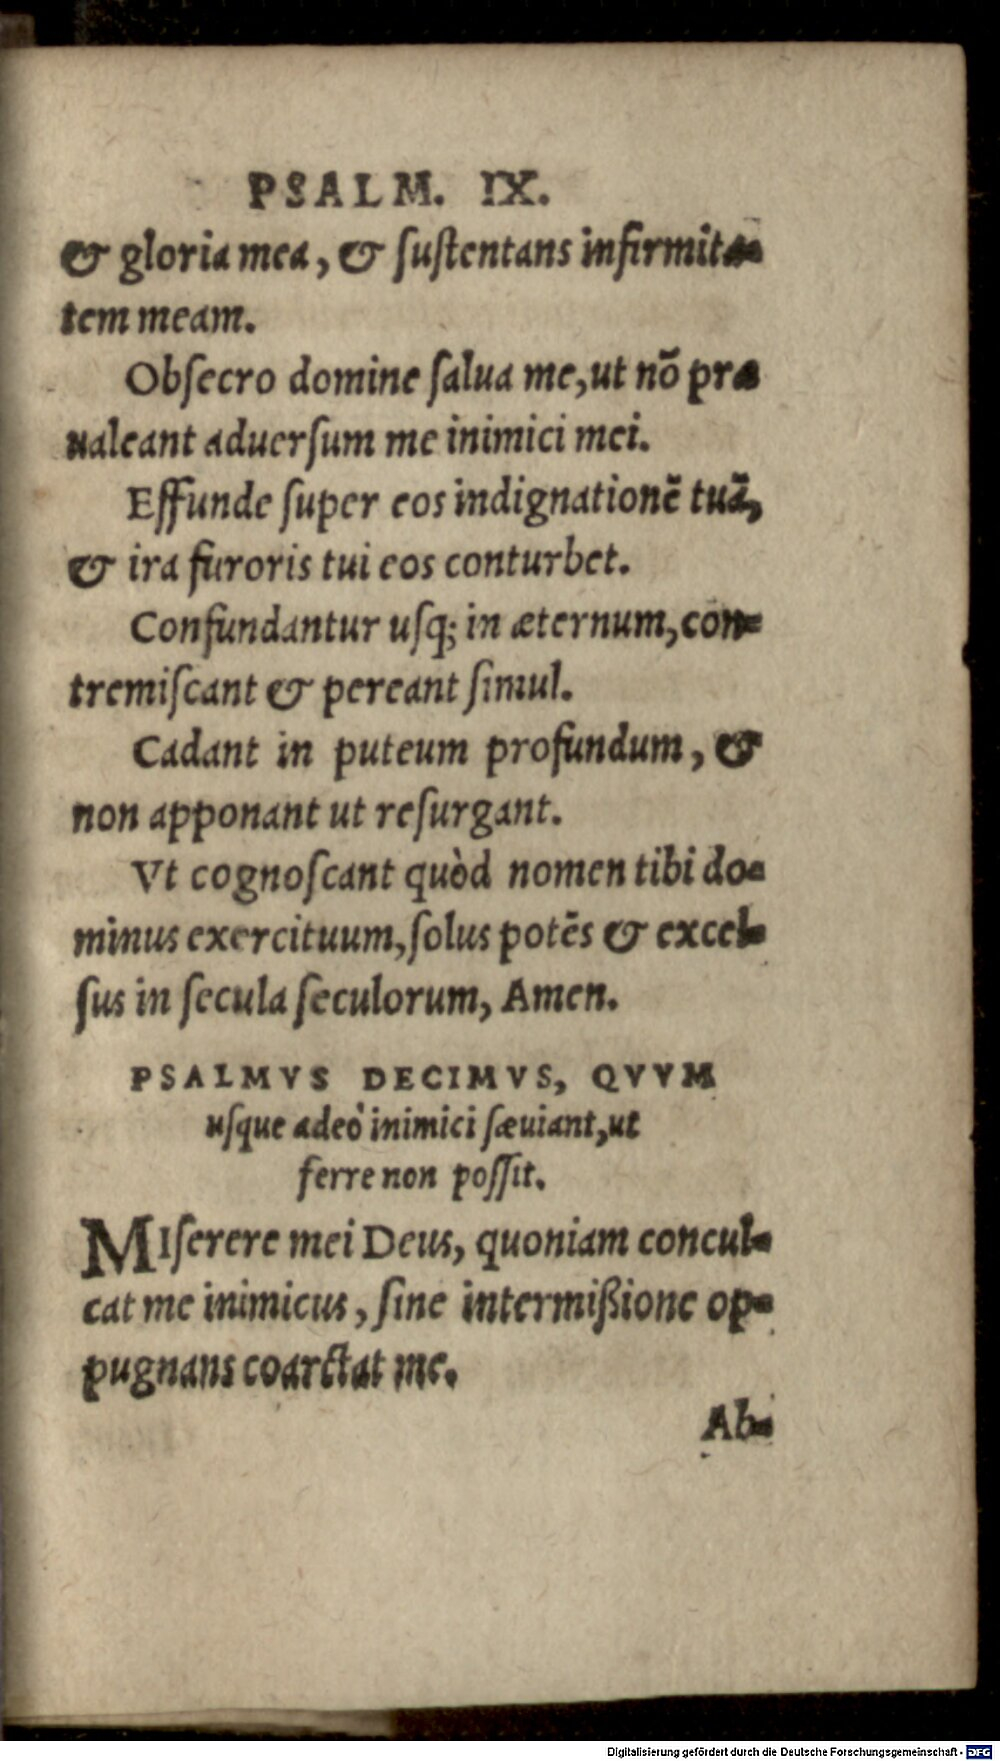 PSALM. IX.
& gloria mea, & ſuſtentans infirmita-
tem meam.
Obſecro domine ſalua me, ut nõ præ
ualeant aduerſum me inimici mei.
Effunde ſuper eos indignationẽ tuã,
& ira furoris tui eos conturbet.
Confundantur uſq; in æternum, con-
tremiſcant & pereant ſimul.
Cadant in puteum profundum, &
non apponant ut reſurgant.
Vt cognoſcant quòd nomen tibi do-
minus exercituum, ſolus potẽs & excel-
ſus in ſecula ſeculorum, Amen.
PSALMVS DECIMVS, QVVM
uſque adeò inimici ſæuiant, ut
ferre non poſſit.
MIſerere mei Deus, quoniam concul-
cat me inimicus, ſine intermißione op-
pugnans coarctat me.
Ab-
Digitalisierung gefördert durch die Deutsche Forschungsgemeinschaft - DFG